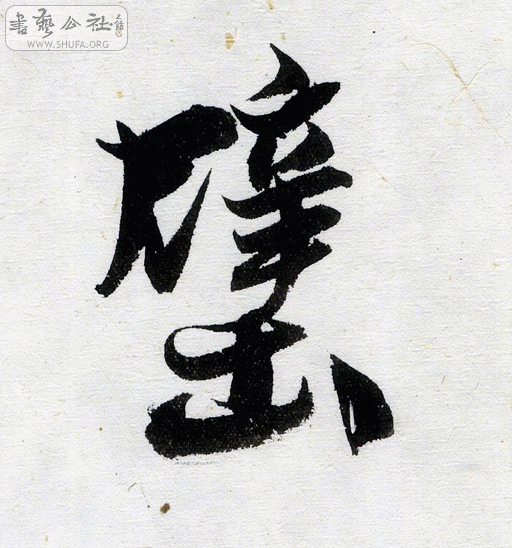 書藝公社
WWW.SHUFA.ORG
璧